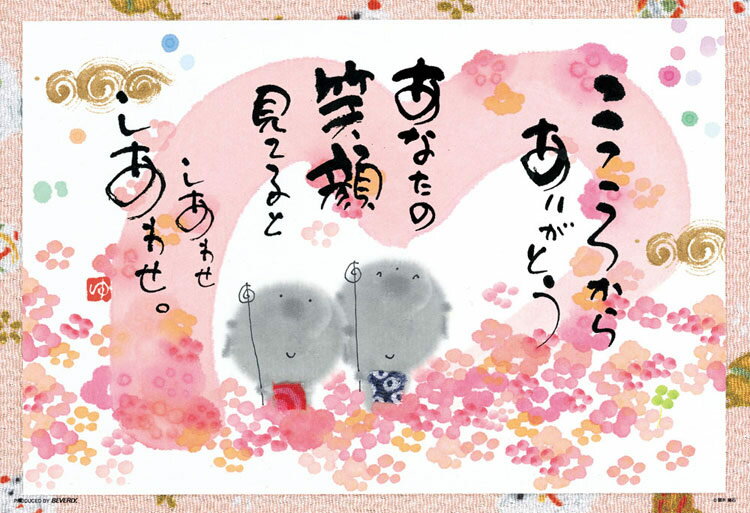 こころから
ありがとう
あなたの
笑顔
見てると
しあわせ
しあわせ。
ゆ
PRODUCED BY BEVERIX.